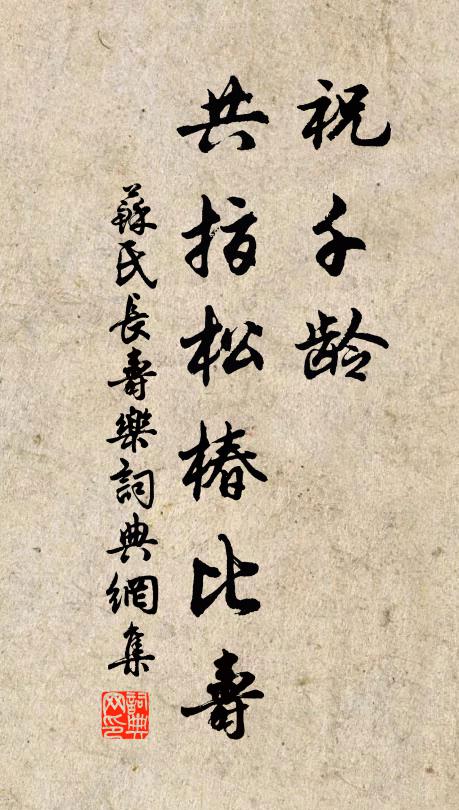 祝千龄
共指松椿比壽
蘇氏長壽樂詞典網集
詞典网印